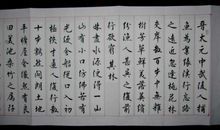 晉太元中武陵人捕
魚為業緣溪行忘路
之遠近忽逢桃花林
夾岸數百步中無雜
樹芳草鮮美落英繽
紛漁人甚異之復前
行欲窮其林
林盡水源便得一山
山有小口仿佛若有
光便舍船從口入初
極狹才通人復行數
十步豁然開朗土地
平曠屋舍儼然有良
田美池桑竹之屬阡